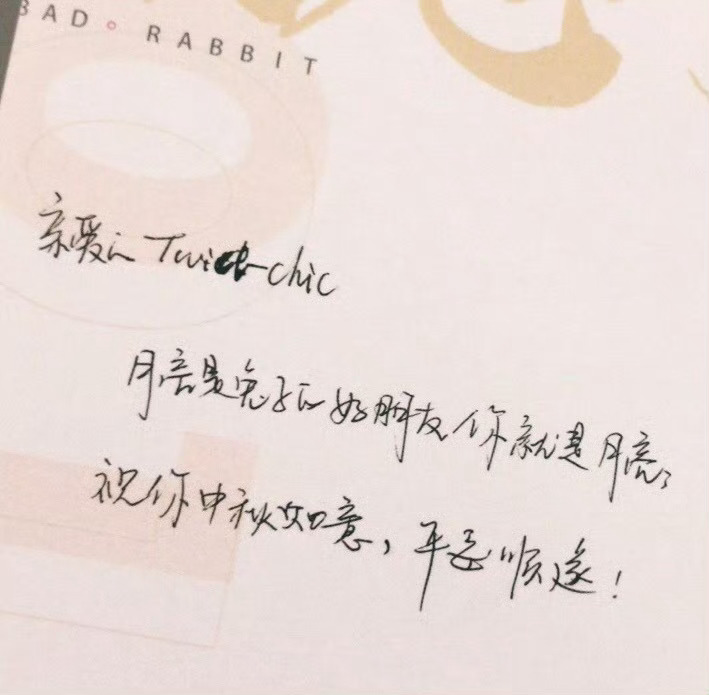 BAD RABBIT
亲爱的 Twice-chic
月亮是兔子的好朋友你就是月亮,
祝你中秋如意,平安顺遂!